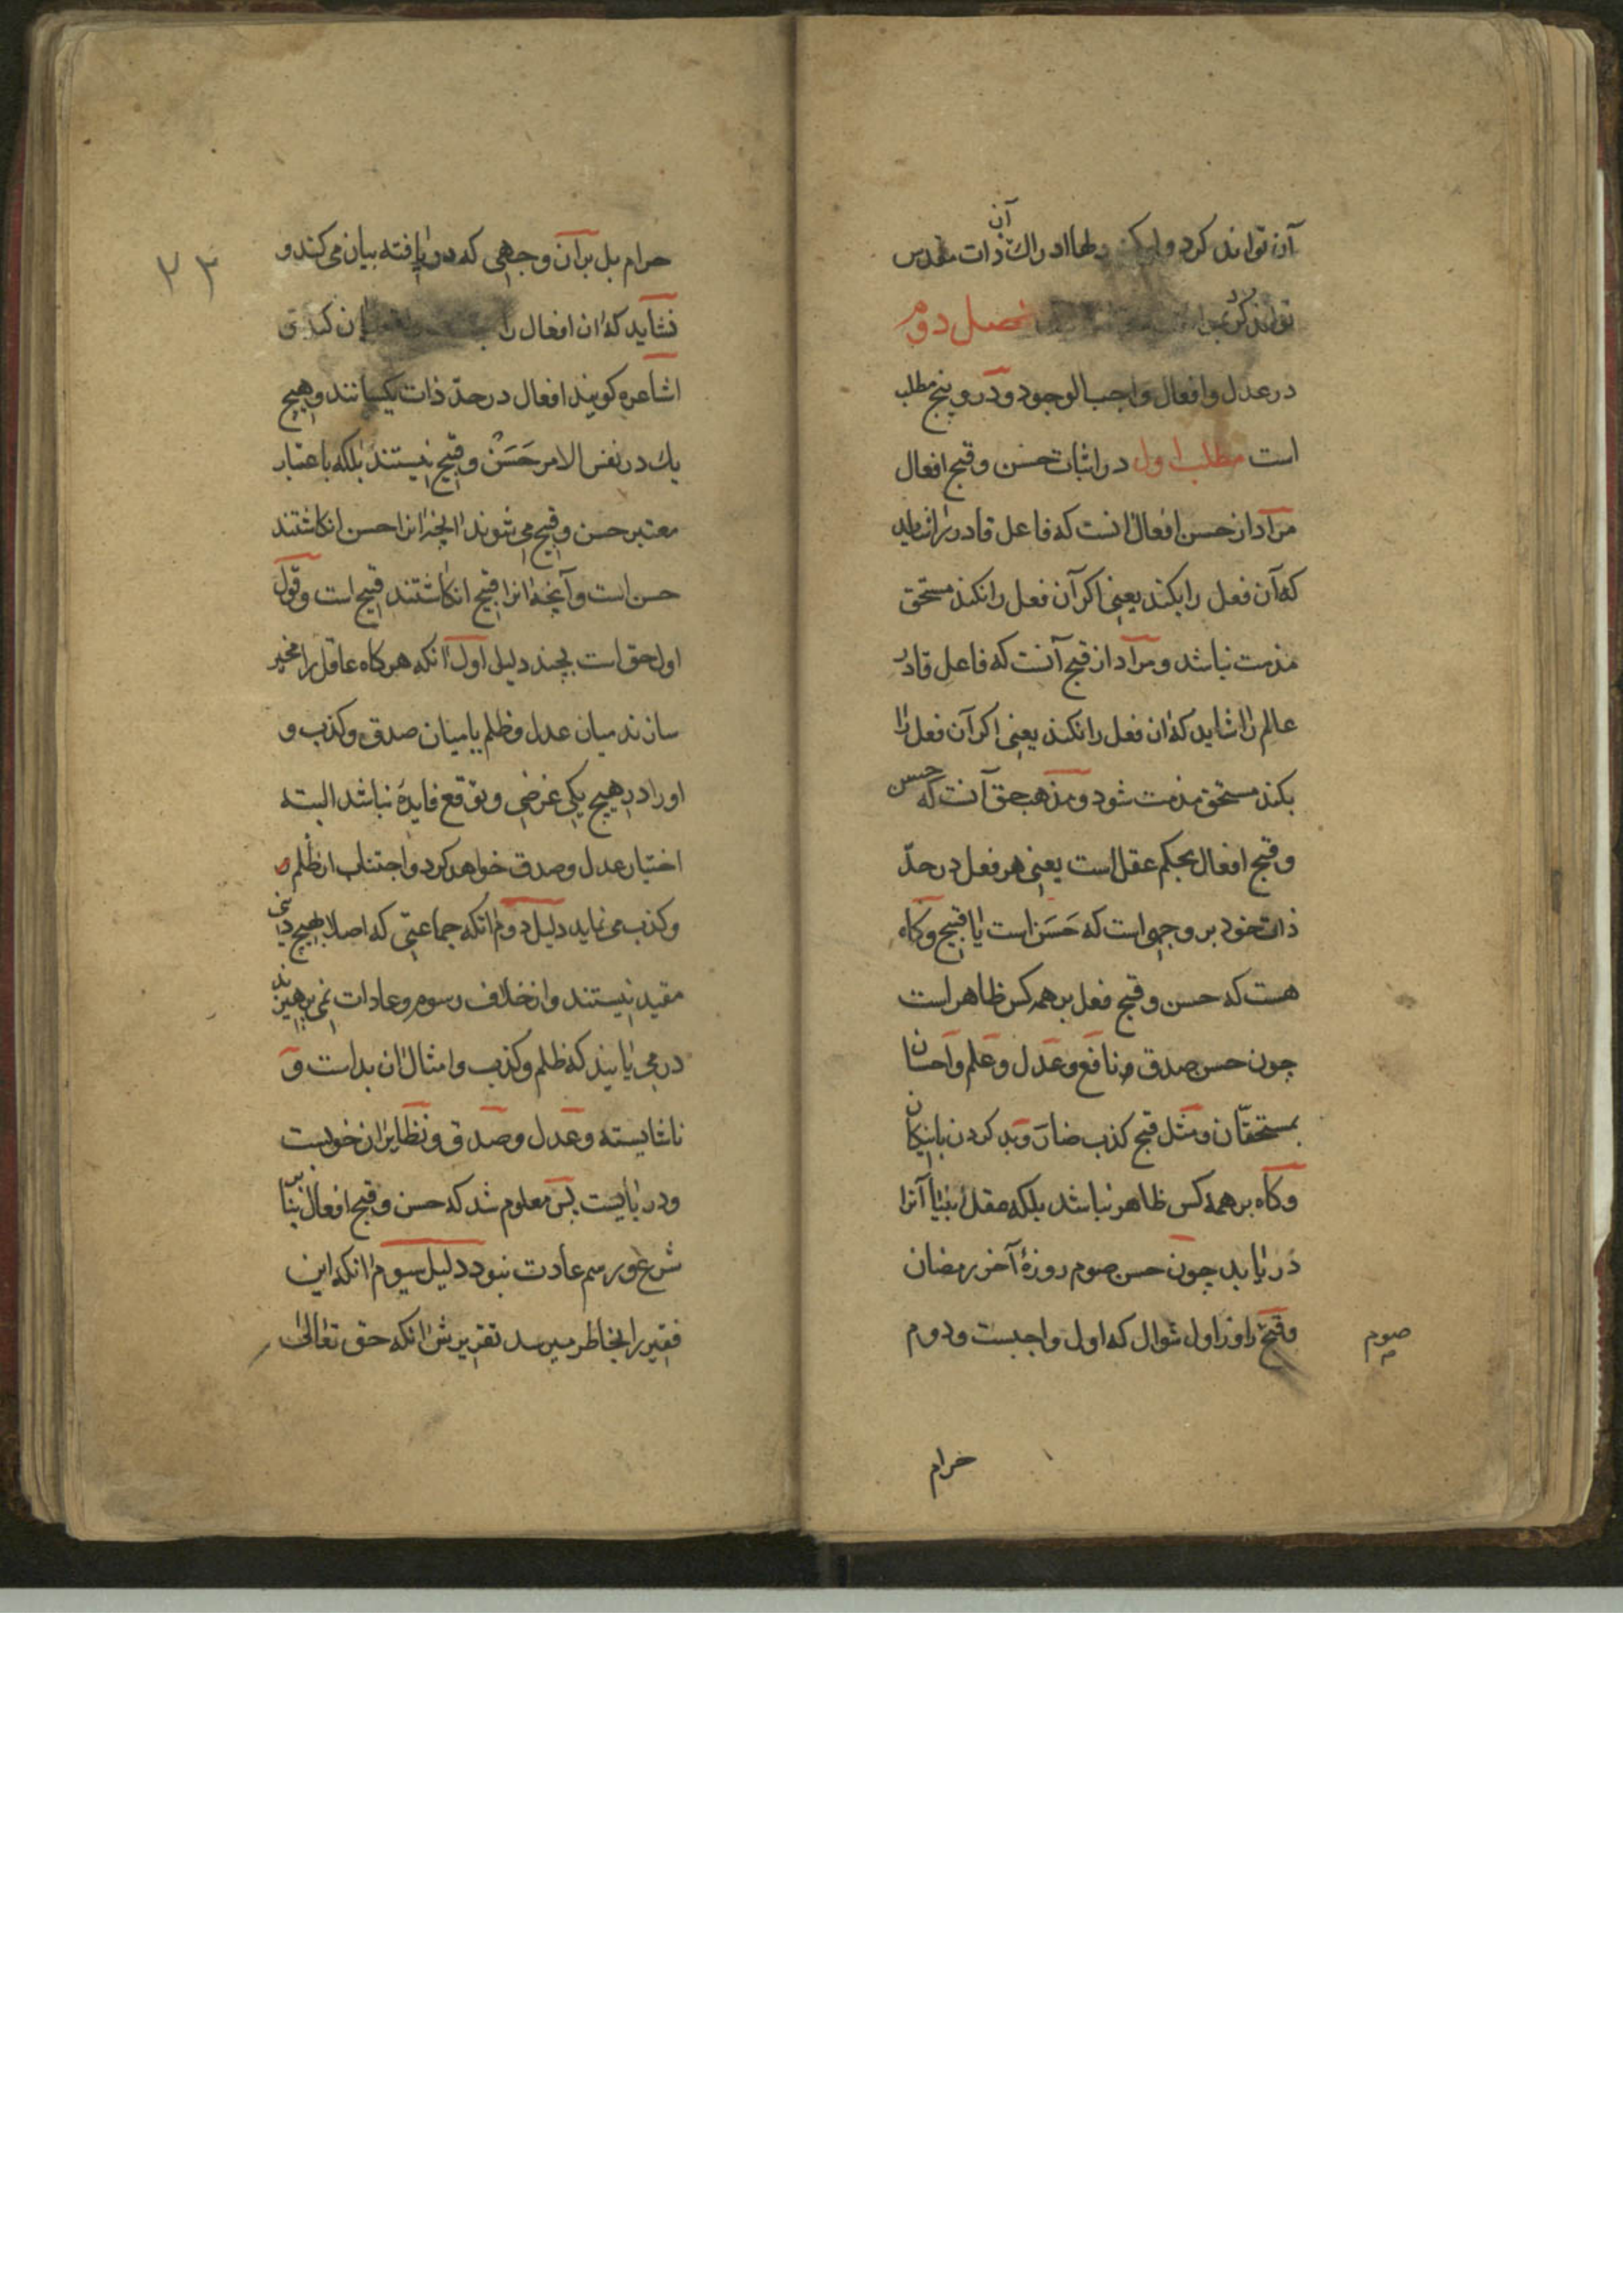 آن توانند کرد و لیکن دلها ادراک آن ذات مقدس
توانند کرد فصل دوم
در عدل و افعال واجب الوجود و درو پنج مطلب
است مطلب اول در اثبات حسن و قبح افعال
مراد از حسن افعال آنست که فاعل قادر را شاید
که آن فعل را بکند یعنی اکر آن فعل را نکند مستحق
مذمت نباشد و مراد از قبح آنست که فاعل قادر
عالم را شاید که ان فعل را نکند یعنی اکر آن فعل را
بکند مستحق مذمت شود و مذهب حق آنست که حسن
و قبح افعال بحکم عقل است یعنی هر فعل در حدّ
ذات خود بر وجهی است که حَسَن است یا قبیح و کاه
هست که حسن و قبح فعل بر همه کس ظاهر است
چون حسن صدق نافع و عدل و علم و احسان
بمستحقّان و مثل قبح کذب ضارّ و بد کردن با نیکان
و کاه بر همه کس ظاهر نباشد بلکه عقل آنرا
در یابد چون حسن صوم روزهٔ آخر رمضان
و قبح روز اول شوال که اول واجبست و دوم
صوم
حرام
۲۳
حرام بل بر آن وجهی که دریافته بیان می کند و
نشاید که ان افعال را
اشاعره کویند افعال در حدّ ذات یکسانند و هیچ
یک در نفس الامر حَسَنْ و قبیح نیستند بلکه باعتبار
معتبر حسن و قبیح می شوند انچه انرا حسن انکاشتند
حسن است و آنچه انرا قبیح انکاشتند قبیح است و قول
اول حق است بچند دلیل اول انکه هرکاه عاقل را مخیر
سازند میان عدل و ظلم یا میان صدق و کذب و
او را در هیچ یکی غرضی و توقع فایدهٔ نباشد البته
اختیار عدل و صدق خواهد کرد و اجتناب از ظلم
و کذب می نماید دلیل دوم انکه جماعتی که اصلا بهیچ دینی
مقید نیستند و از خلاف رسوم و عادات نمی پرهیزند
در می یابند که ظلم و کذب و امثال ان بد است و
ناشایسته و عدل و صدق و نظایر ان خوبست
و در بایست پس معلوم شد که حسن و قبح افعال بنا بر
شرع و رسم عادت نبود دلیل سیوم انکه این
فقیر را بخاطر میرسد تقریرش انکه حق تعالی